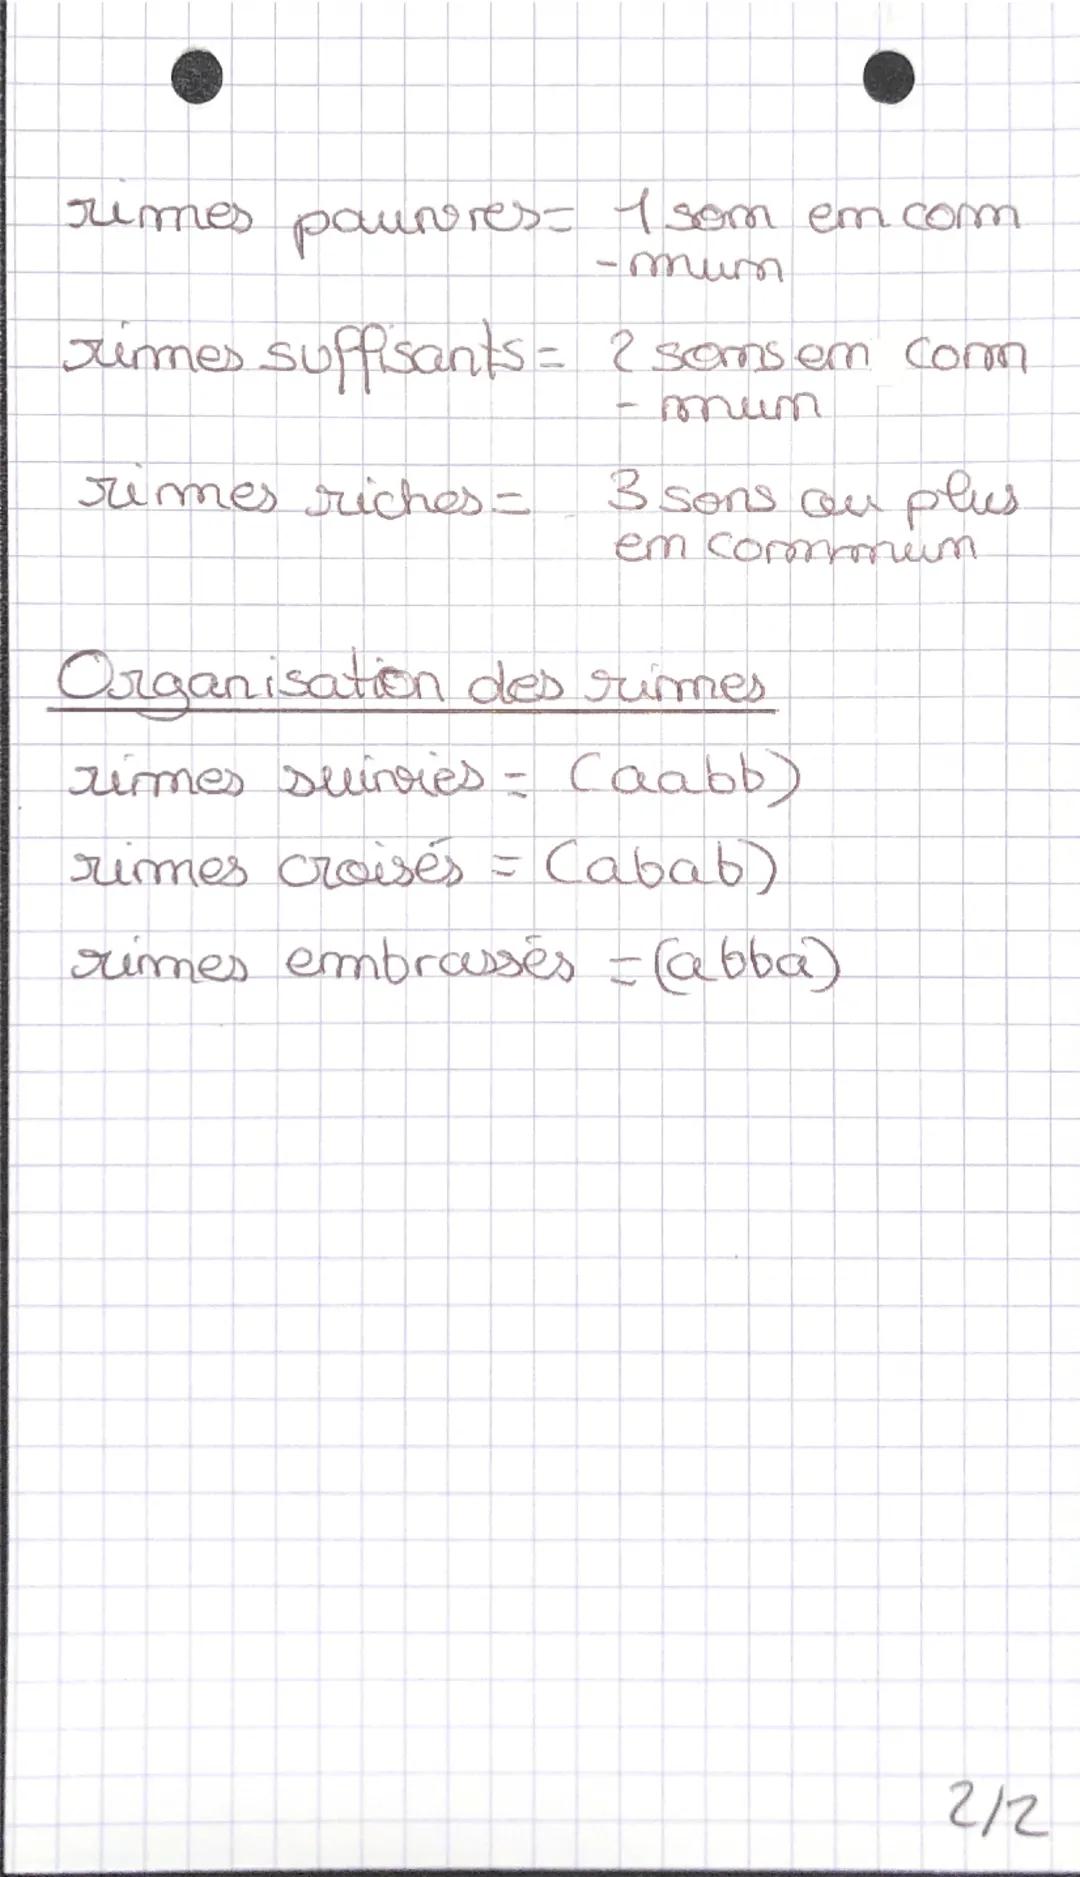 rimes pauvres = 1 son en com
-mun
rimes suffisants = 2 sons en com
- mun
rimes riches = 3 sons ou plus
en commun
Organisation des rimes
rimes suivies = (aabb)
rimes croisés = (abab)
rimes embrassés = (abba)
2/2